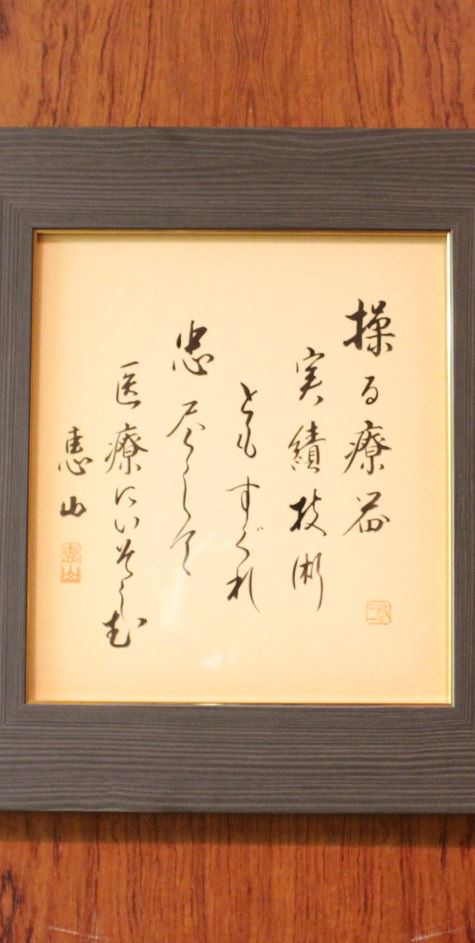 操る療器
実績技術
ともすぐれ
忠尽くして
医療にいそしむ
恵山